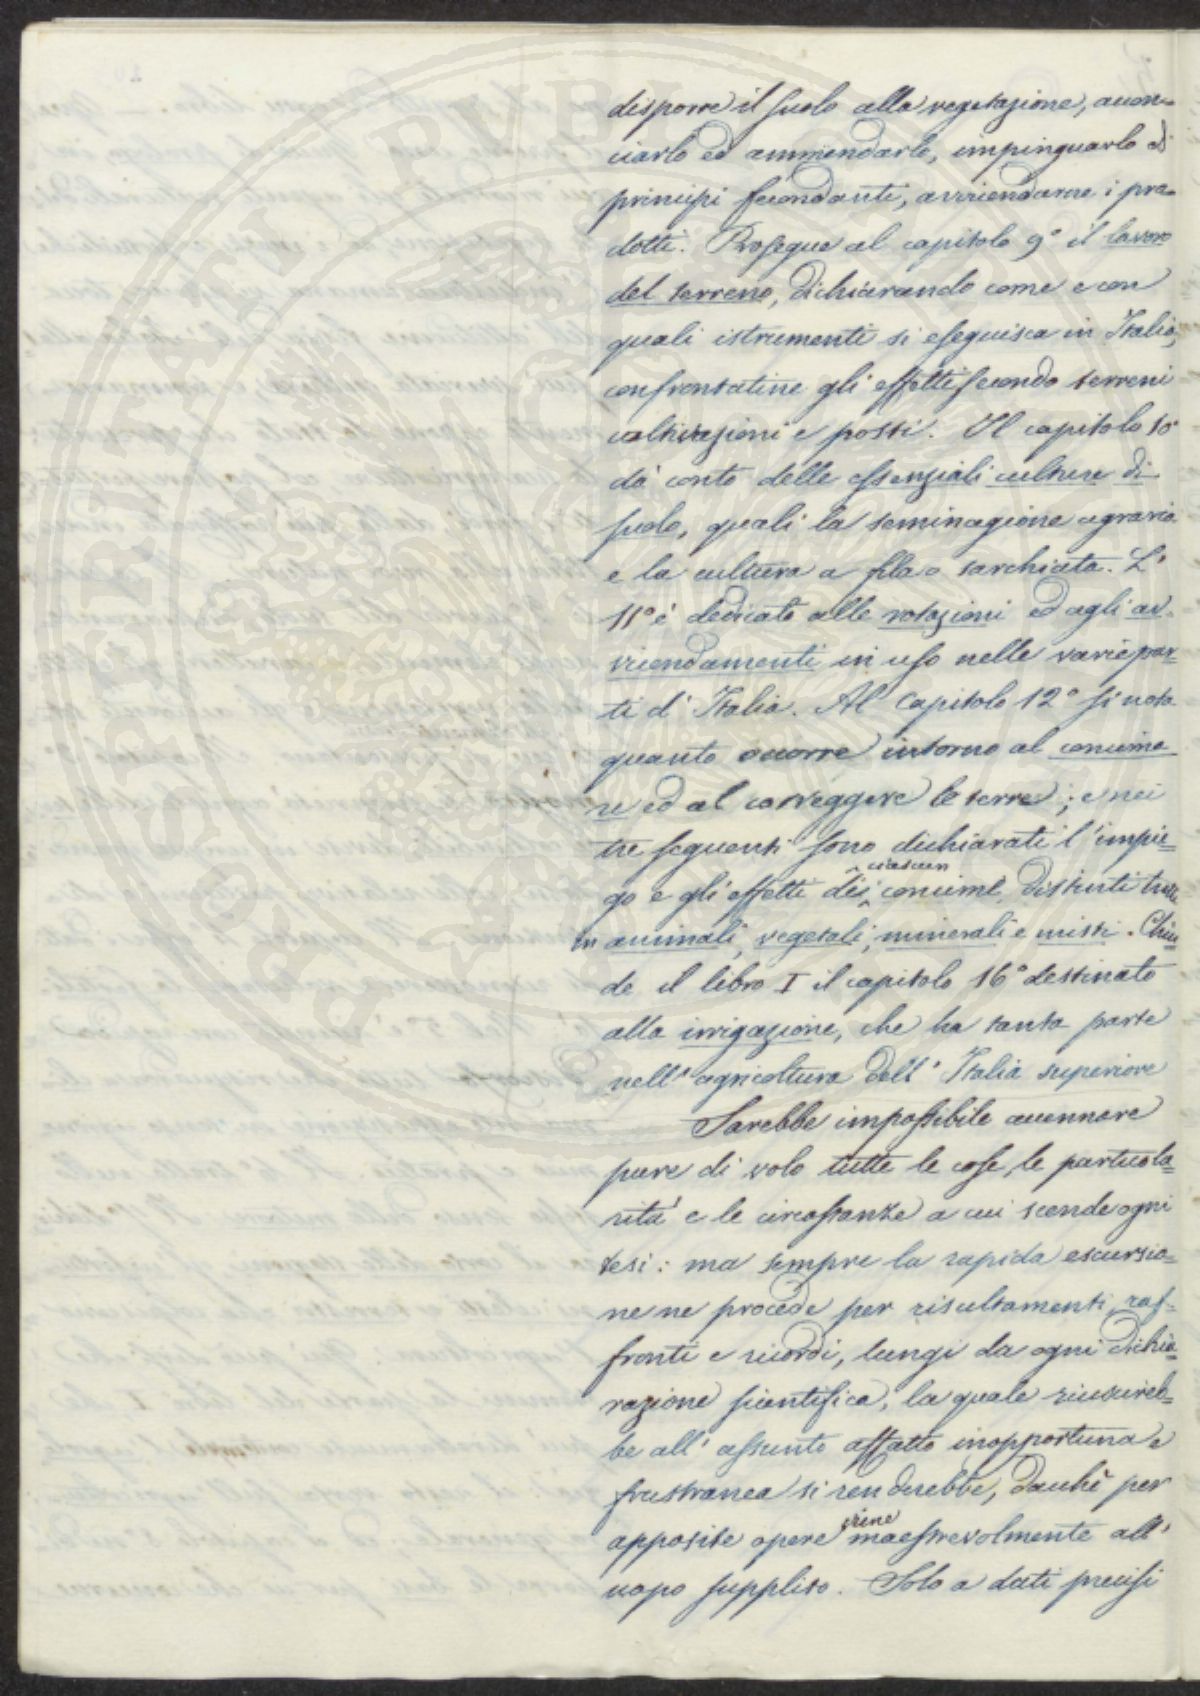 disporre il suolo alla vegetazione, accon-
ciarlo ed ammendarlo, impinguarlo di
principi fecondanti, avviendarne i pro-
dotti. Prosegue al capitolo 9° il lavoro
del terreno, dichiarando come e con
quali istrumenti si eseguisca in Italia,
confrontatine gli effetti secondo terreni
coltivazioni e posti. Il capitolo 10°
dà conto delle essenziali culture di
suolo, quali la seminagione agraria
e la cultura a fila o sarchiata. L'
11° è dedicato alle rotazioni ed agli av-
vicendamenti in uso nelle varie par-
ti d'Italia. Al Capitolo 12° si nota
quanto occorre intorno al concima
re ed al correggere le terre; e nei
tre seguenti sono dichiarati l'impie-
go e gli effetti di ciascun concime, distinti
in animali, vegetali, minerali e misti. Chiu
de il libro I il capitolo 16° destinato
alla irrigazione, che ha tanta parte
nell'agricoltura dell'Italia superiore
Sarebbe impossibile accennare
pure di volo tutte le cose, le particola-
rità e le circostanze a cui scende ogni
tesi: ma sempre la rapida escursio-
ne ne procede per risultamenti, raf-
fronti e ricordi, lungi da ogni dichia-
razione scientifica, la quale riuscireb-
be all'assunto affatto inopportuna e
frustranea si renderebbe, dacchè per
apposite opere viene maestrevolmente all'
uopo supplito. Solo a dati precisi
PROSPERITATI PVBLICAE